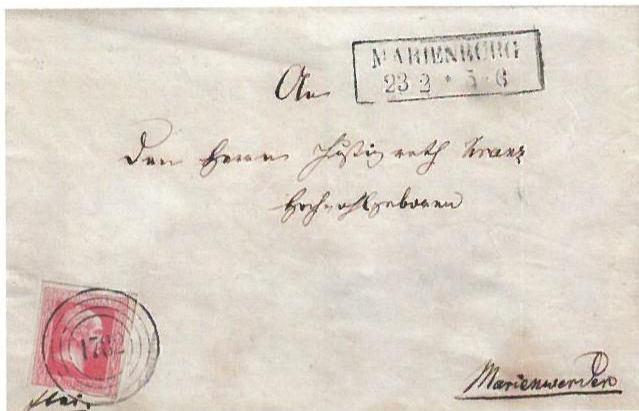 MARIENBURG
23 2 * 5-6
An
den Herrn Justizrath Kranz
Hochwohlgeboren
1782
frei
Marienwerder